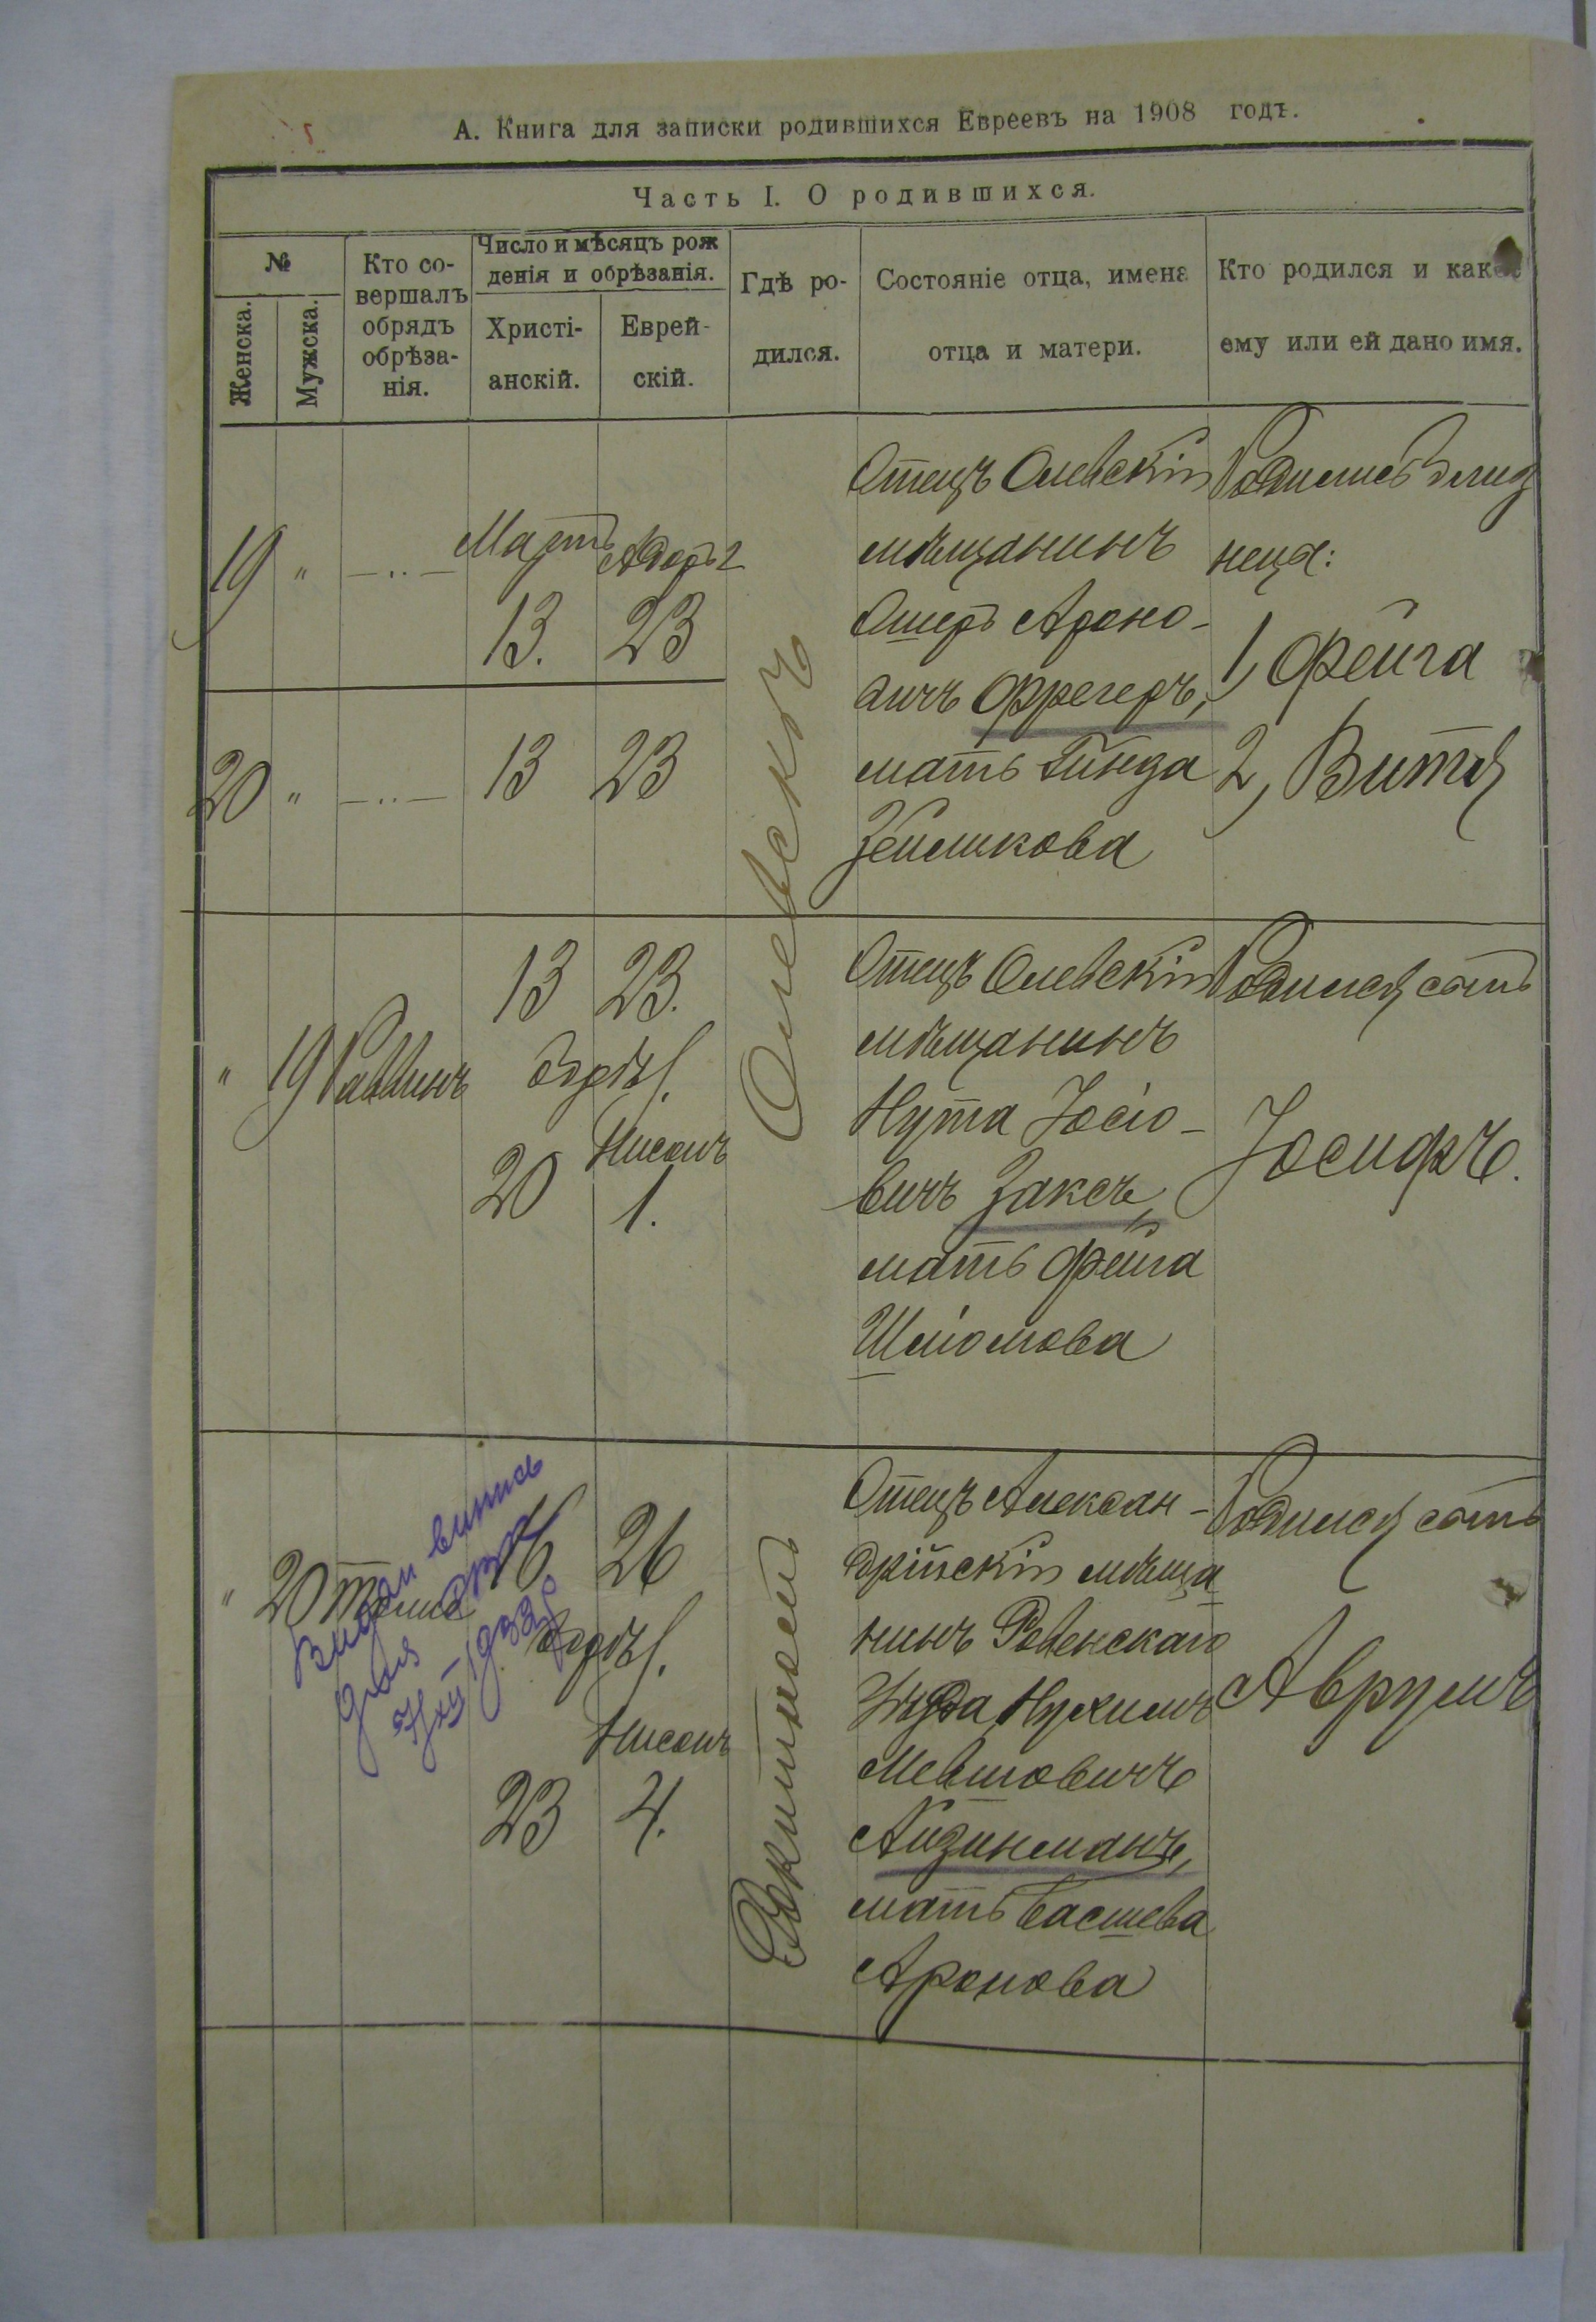 А. Книга для записки родившихся Евреевъ на 1908 годъ.
Часть I. О родившихся.
№
Женска.
Мужска.
Кто со-
вершалъ
обрядъ
обрѣза-
нія.
Число и мѣсяцъ рож
денія и обрѣзанія.
Христі-
анскій.
Еврей-
скій.
Гдѣ ро-
дился.
Состояніе отца, имена
отца и матери.
Кто родился и какое
ему или ей дано имя.
19 " —..—
Мартъ
13.
Адаръ 2
23
Олевскъ
Отецъ Олевскій
мѣщанинъ
Ошеръ Ароно-
вичъ Фрегеръ,
мать Гинда
Зейликова
Родились близ
неца:
1, Фейга
2, Битя
20 " —..— 13 23
" 19 Раввинъ
13 23.
обрѣз.
20
Нисанъ
1.
Отецъ Олевскій
мѣщанинъ
Нута Іосіо-
вичъ Заксъ,
мать Фейга
Шліомова
Родился сынъ
Іосифъ.
" 20 тоже
16 26
обрѣз.
23
Нисанъ
4.
Видан випись
для
1933 р
Отецъ Алексан-
дрійскій мѣща
нинъ Ровенскаго
Уѣзда Нухимъ
Мевшовичъ
Айзинманъ,
мать Басшева
Аронова
Родился сынъ
Аврумъ